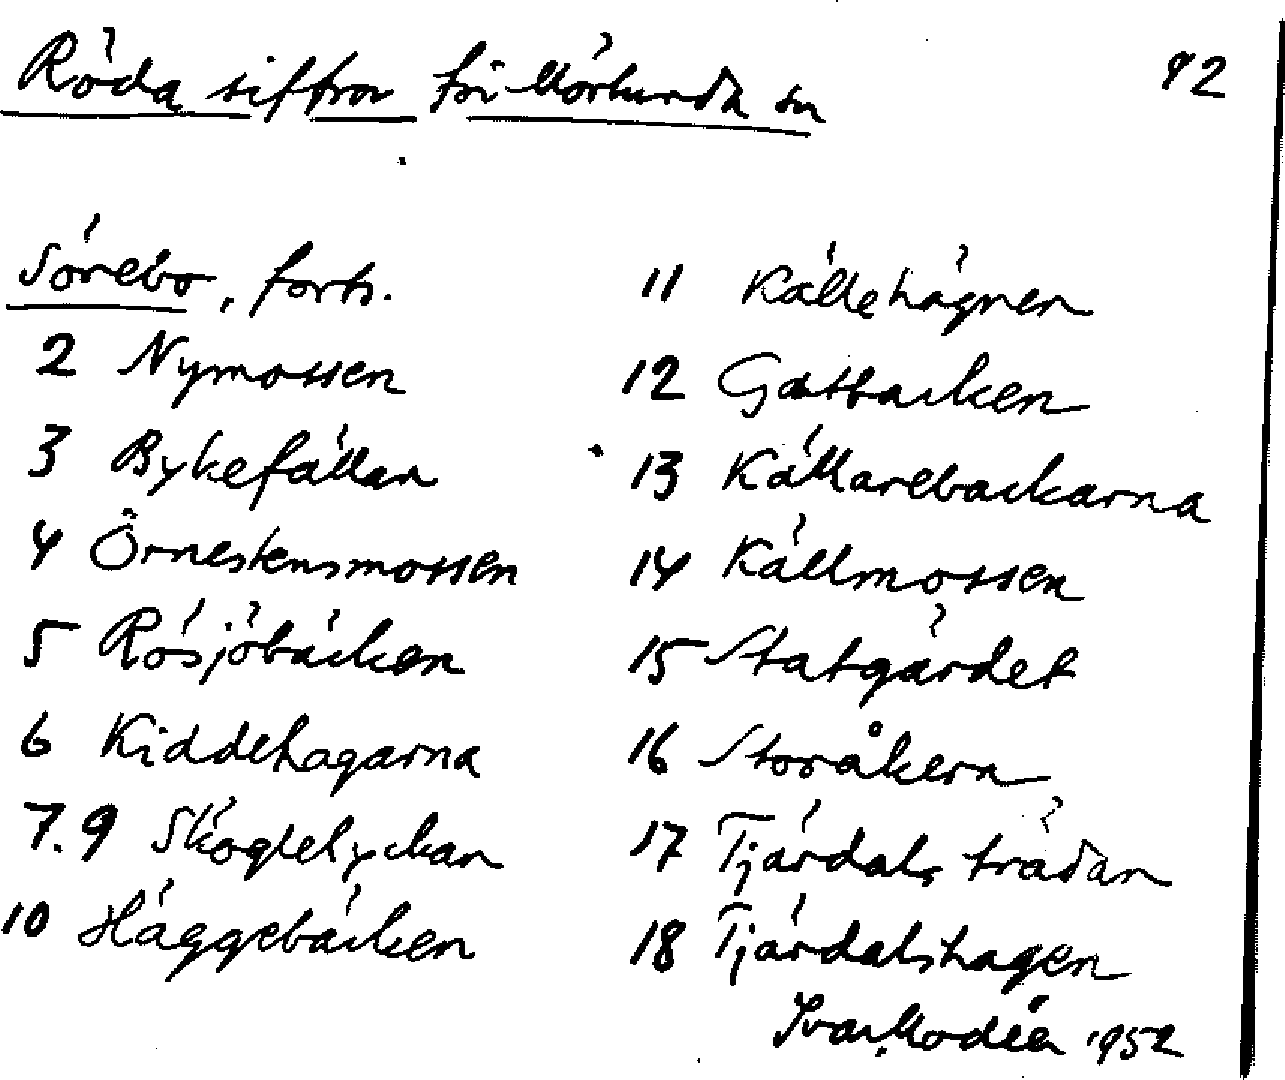 Röda siffror för Mörlunda sn
92
Sörebo, forts.
2 Nymossen
3 Bykefällan
4 Örnestensmossen
5 Rösjöbäcken
6 Kiddehagarna
7.9 Skoglelyckan
10 Häggebäcken
11 Källehägnen
12 Gatbacken
13 Källarebackarna
14 Källmossen
15 Statgärdet
16 Storåkern
17 Tjärdals trädan
18 Tjärdalshagen
Ivar Modéer 1952